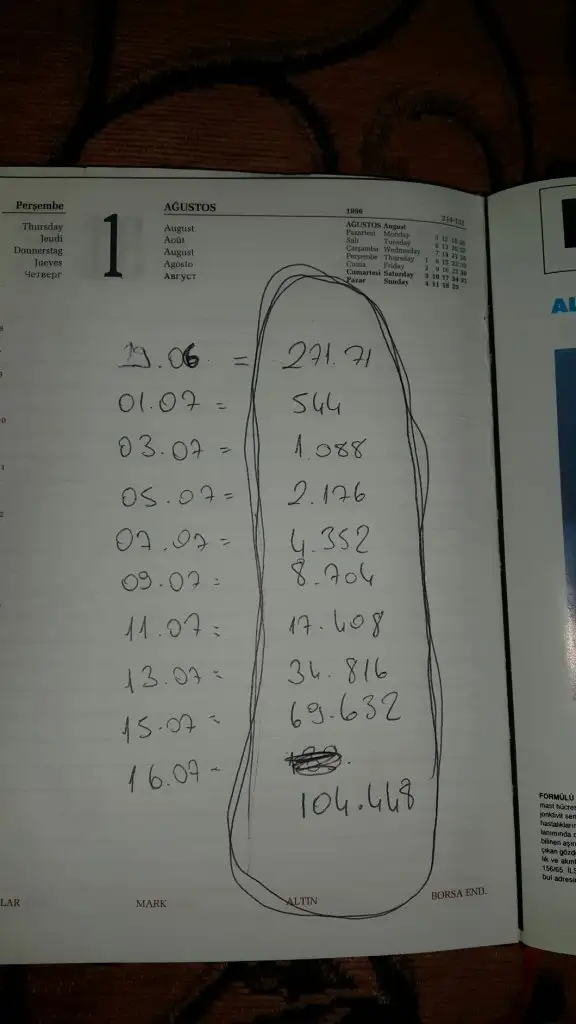 Perşembe
Thursday
Jeudi
Donnerstag
Jueves
Четверг
1
AĞUSTOS
August
Août
August
Agosto
Август
1996
AĞUSTOS August
Pazartesi Monday
Salı Tuesday
Çarşamba Wednesday
Perşembe Thursday
Cuma Friday
Cumartesi Saturday
Pazar Sunday
29.06 = 271.71
01.07 = 544
03.07 = 1.088
05.07 = 2.176
07.07 = 4.352
09.07 = 8.704
11.07 = 17.408
13.07 = 34.816
15.07 = 69.632
16.07 -
104.448
LAR
MARK
ALTIN
BORSA END.
AL
FORMÜLÜ